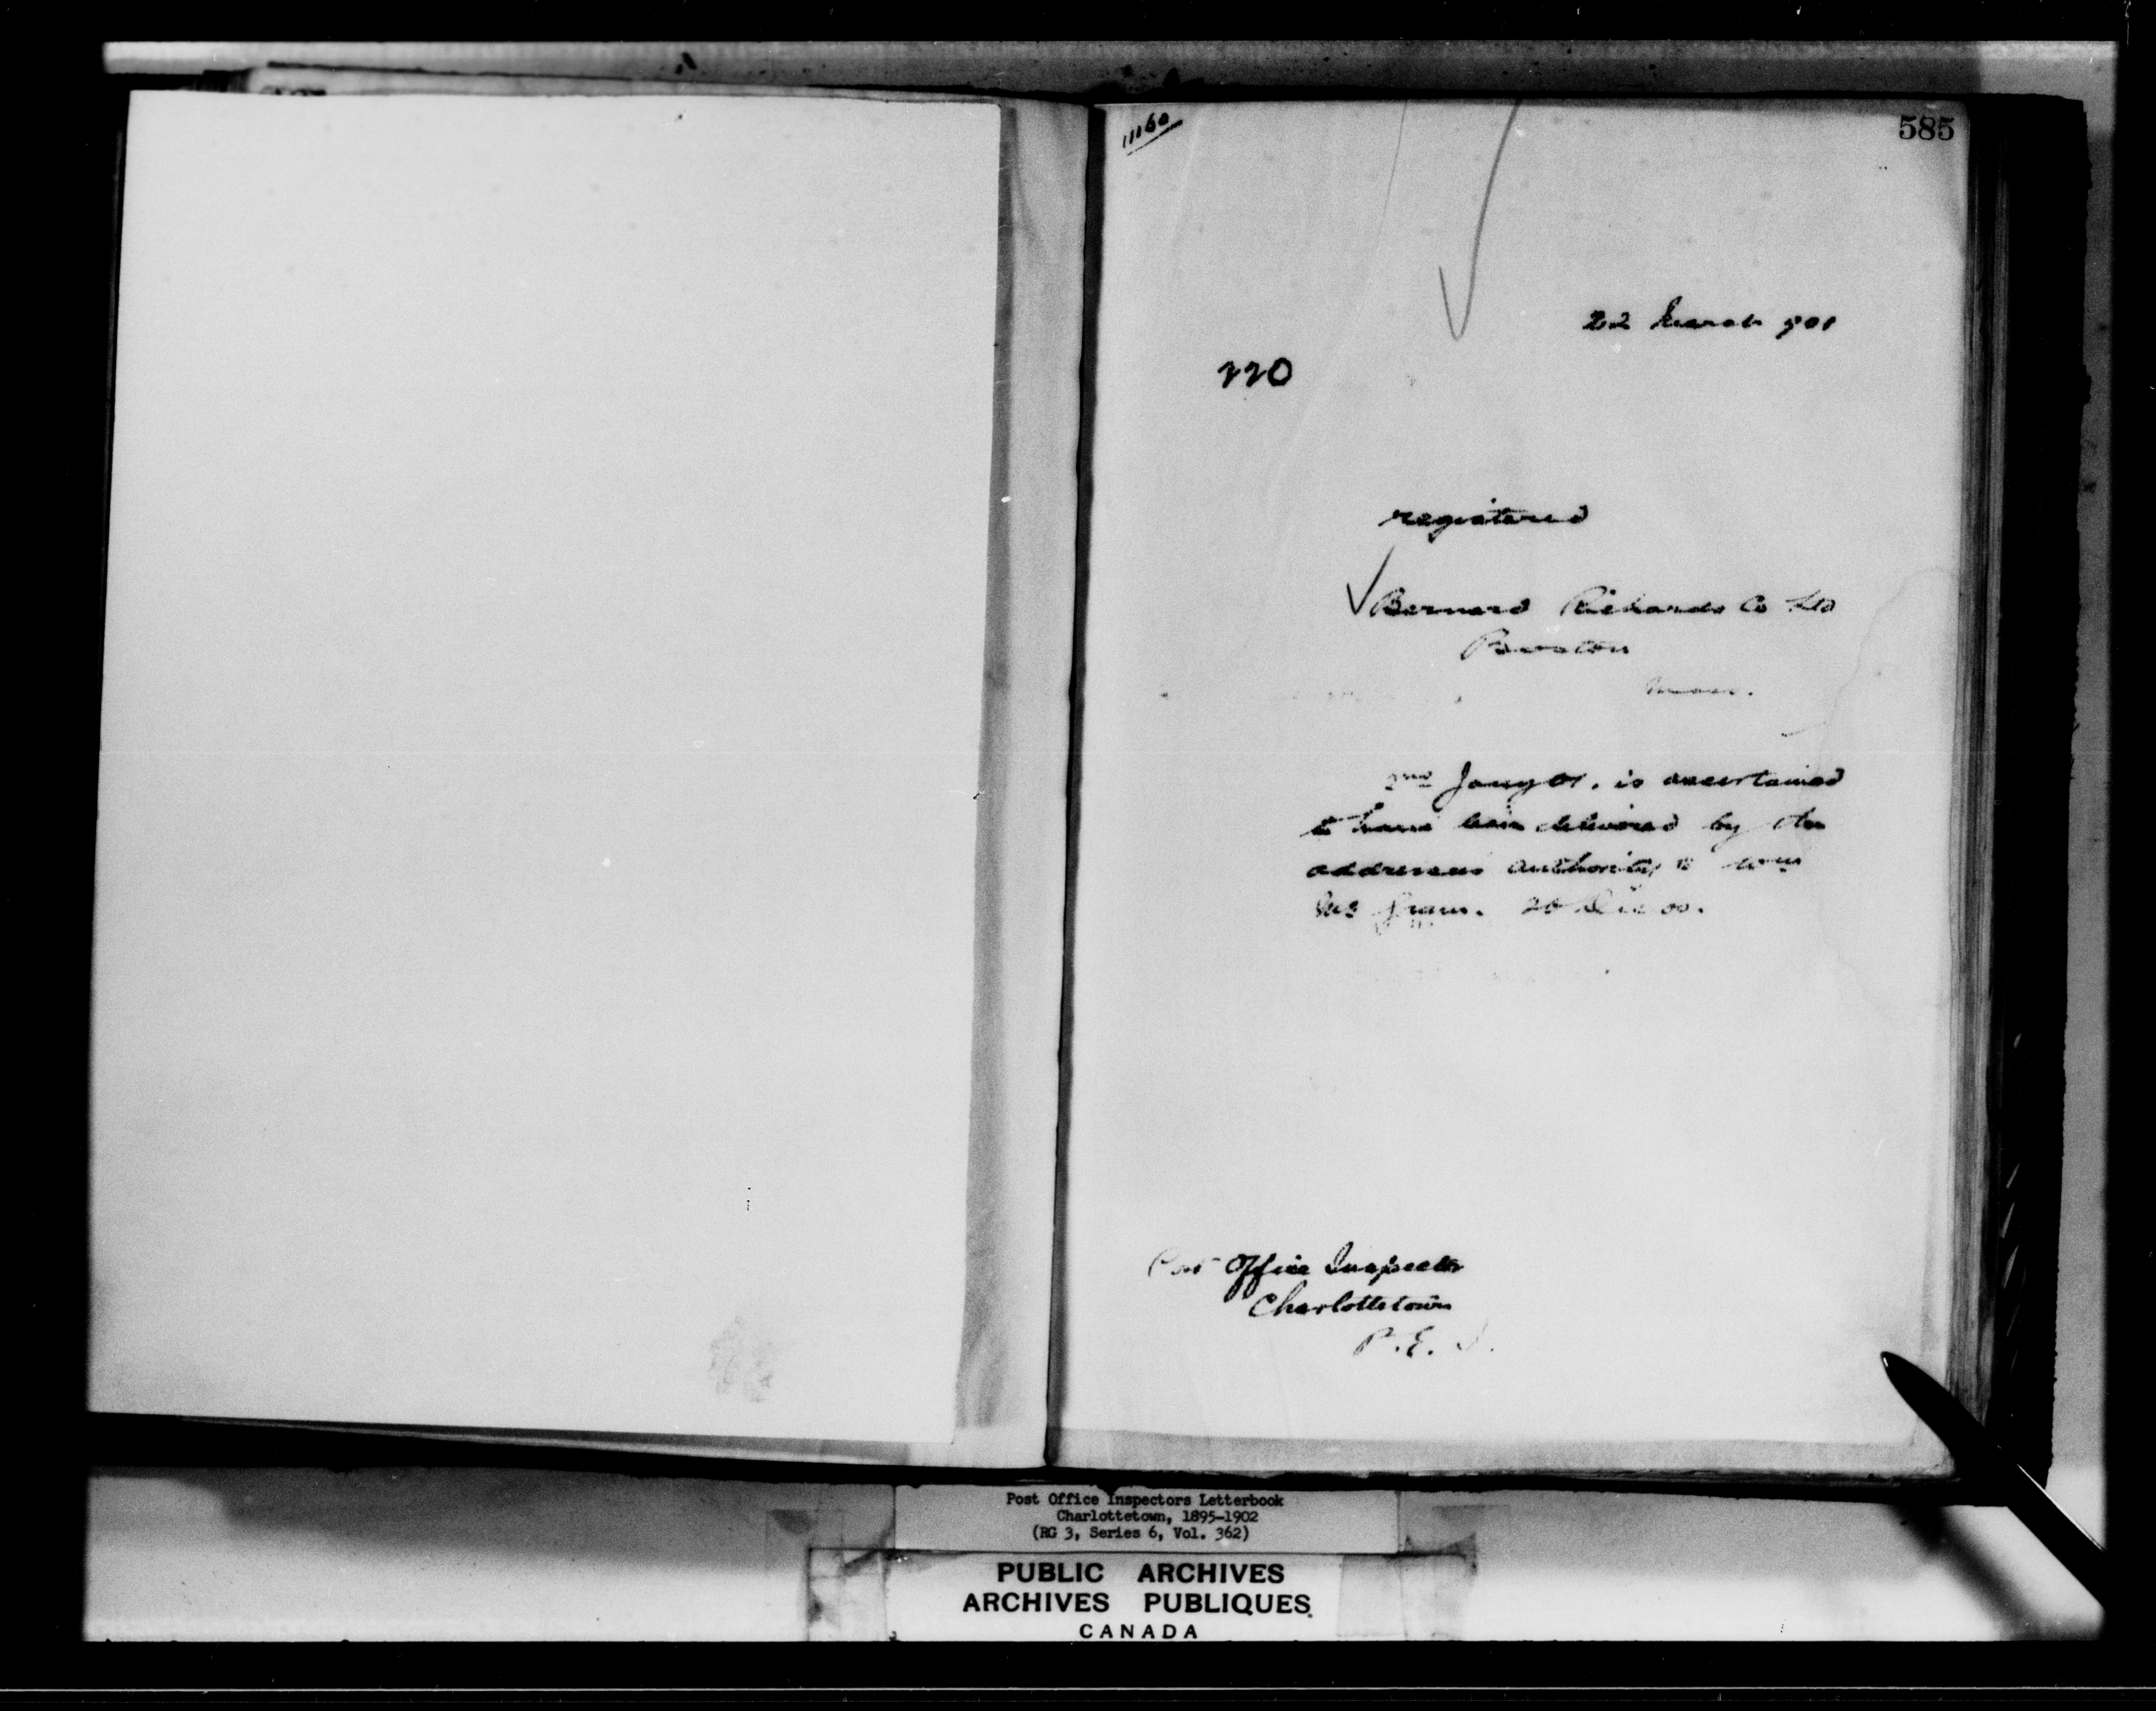 11160
585
22 March 901
220
registered
Bernard Richards Co Ltd
Boston
Mass.
2nd Jany 01. is ascertained
to have been delivered by the
addressees authority to Wm
20 Dec 00.
Post Office Inspector
Charlottetown
P.E.I.
Post Office Inspectors Letterbook
Charlottetown, 1895-1902
(RG 3, Series 6, Vol. 362)
PUBLIC ARCHIVES
ARCHIVES PUBLIQUES
CANADA